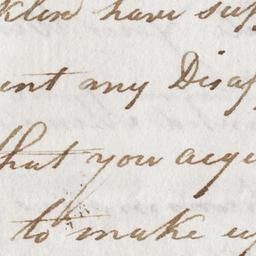 klin have sup
ent any Disap
that you acqu
to make up